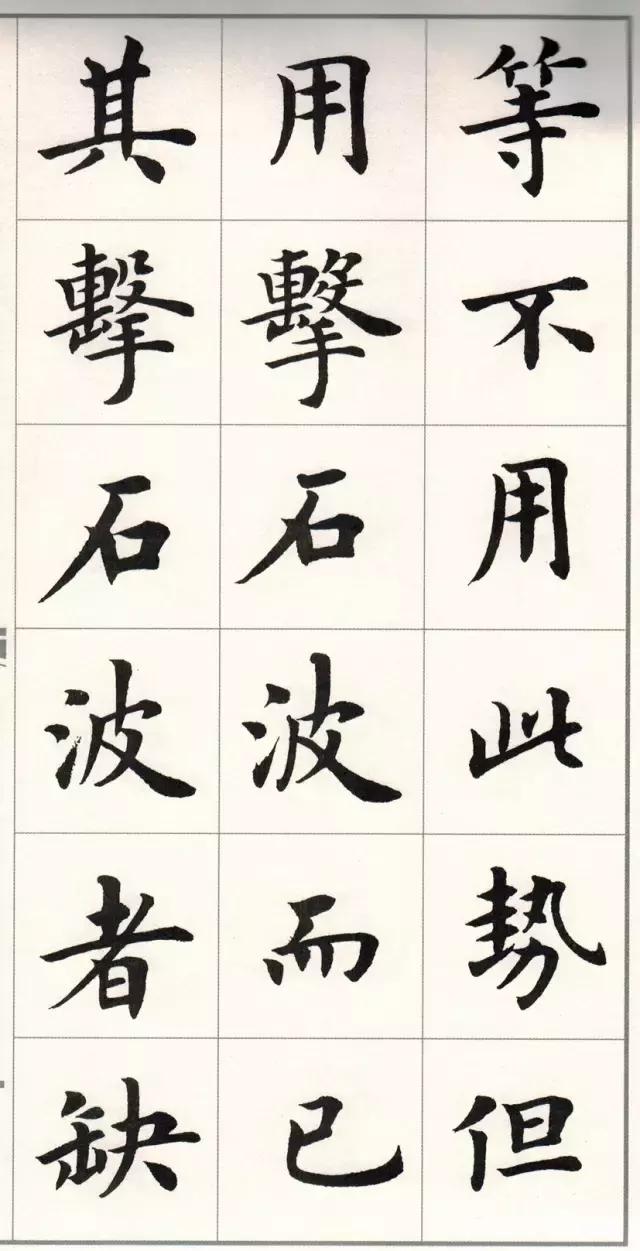 等不用此勢但
用擊石波而已
其擊石波者缺